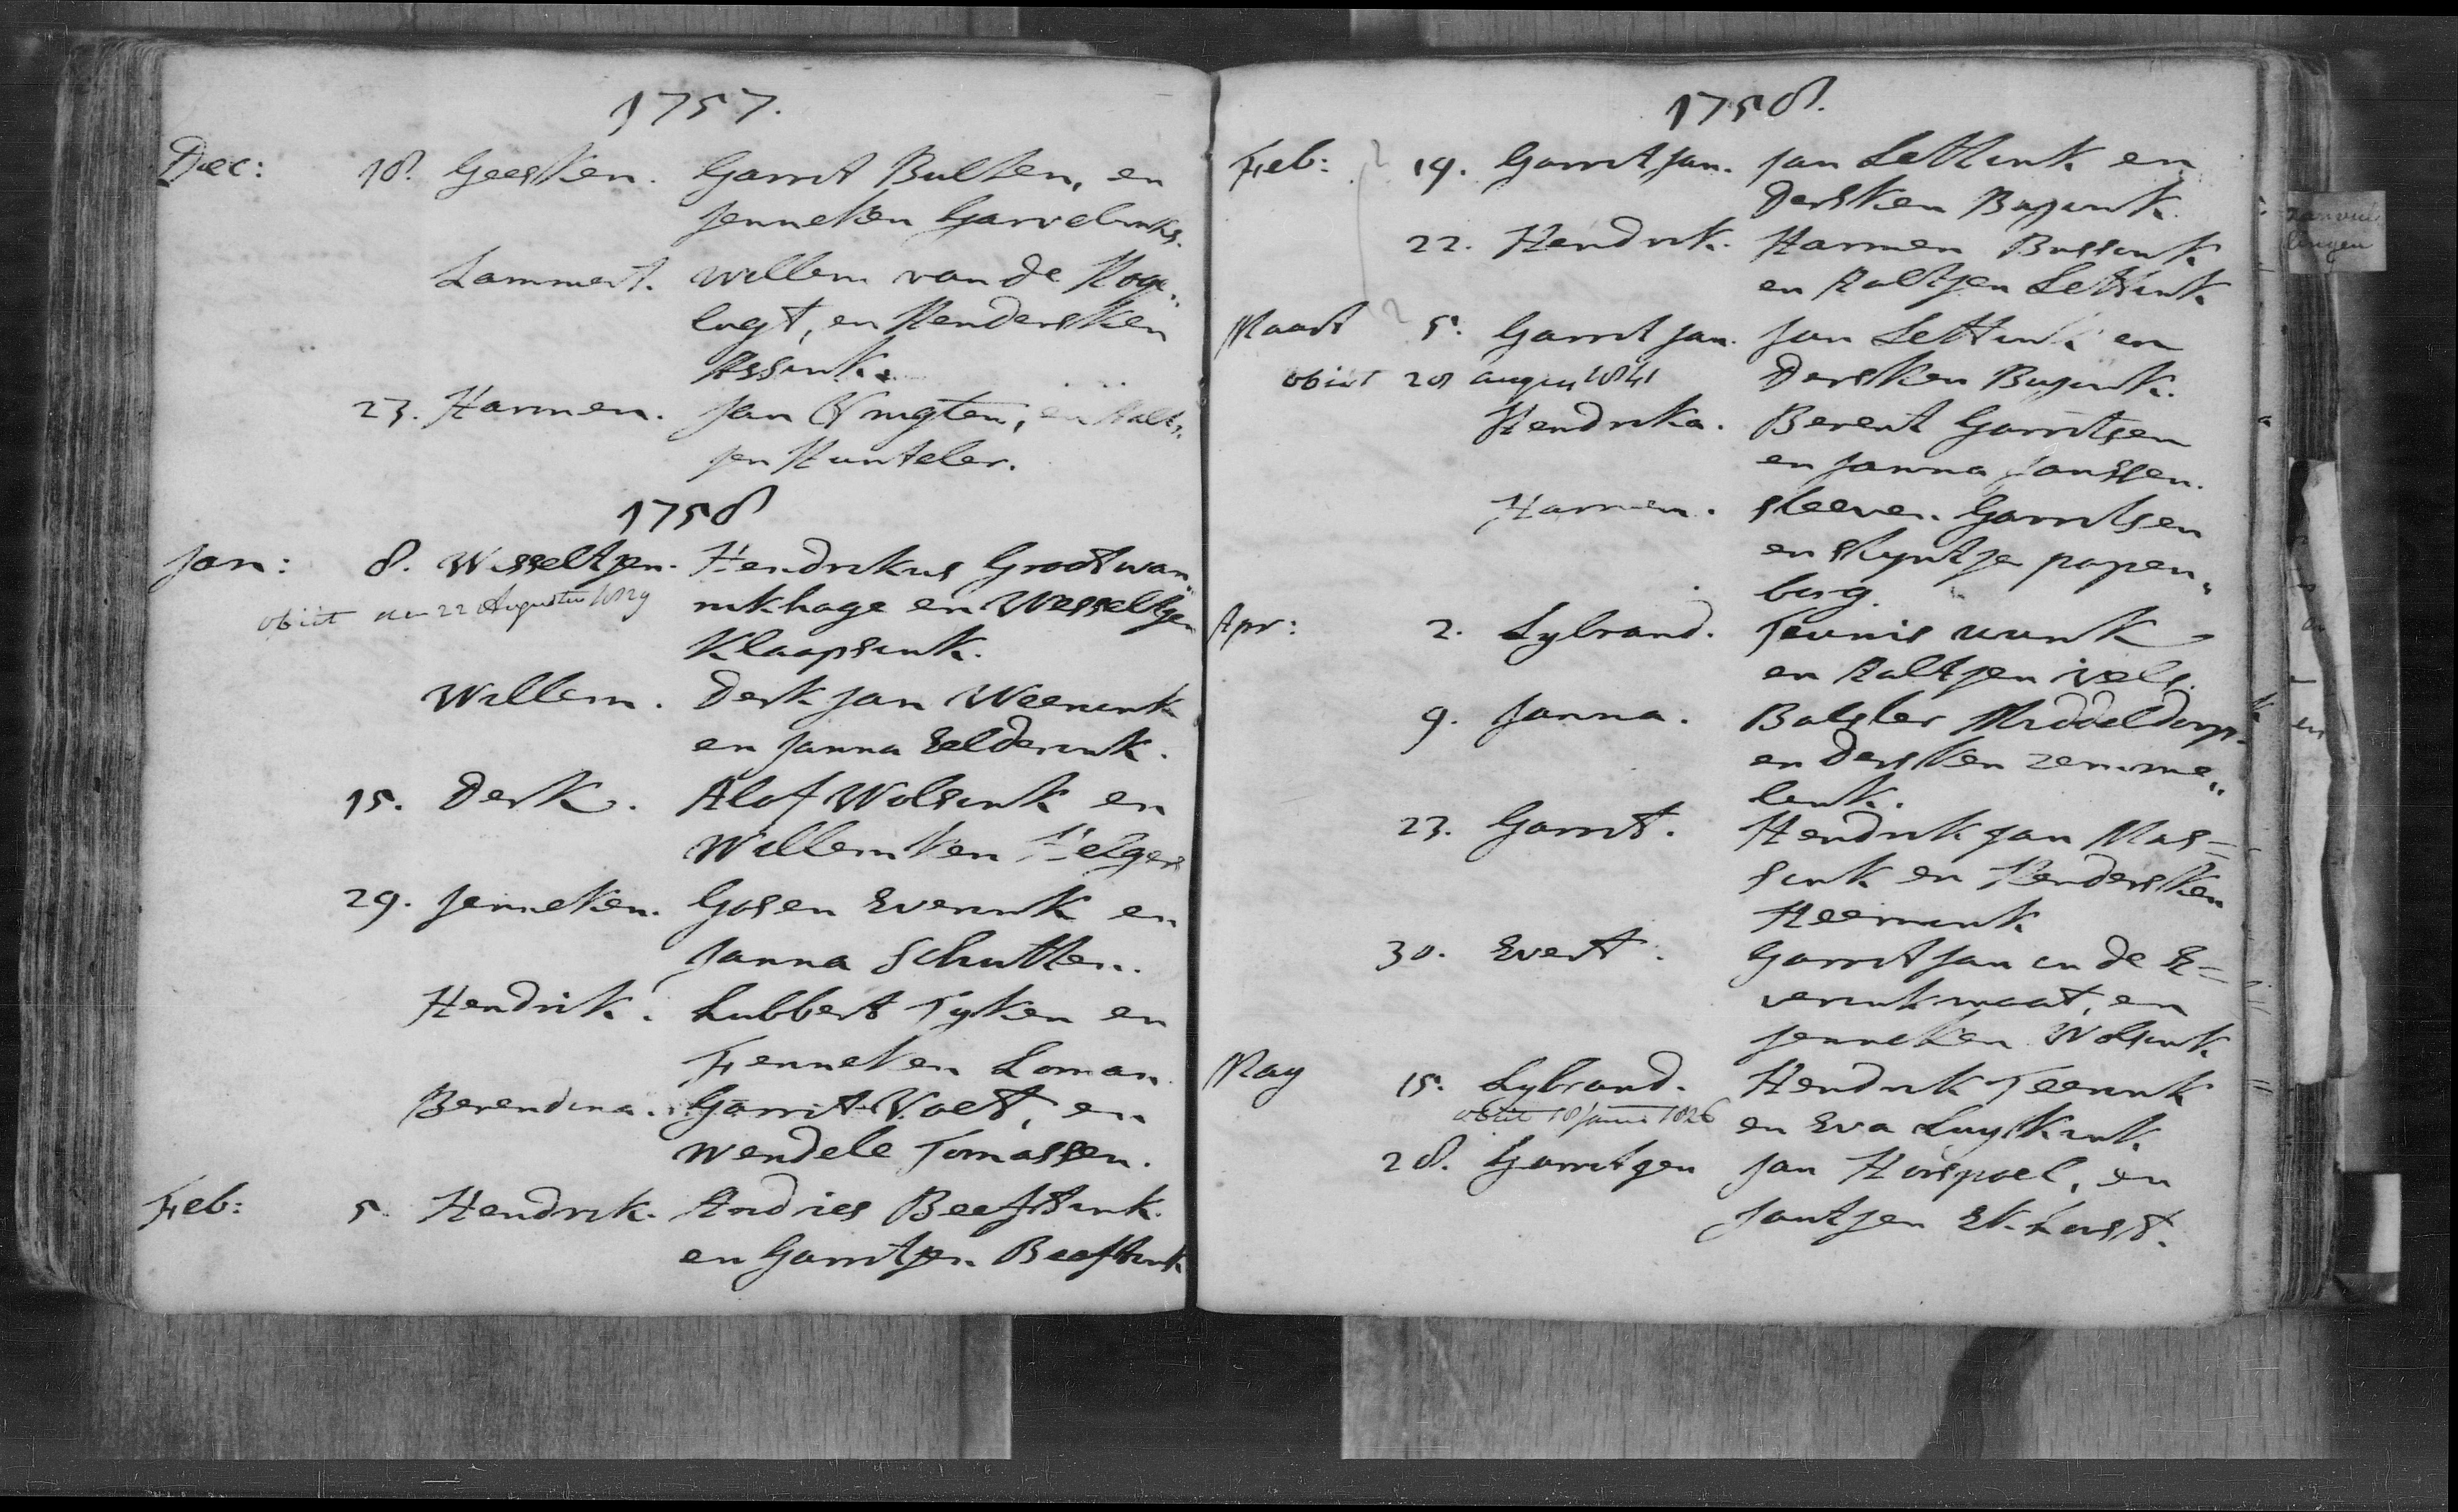 1757.
Dec: 18. Geesken. Garrit Bulten, en
Jenneken Garvelinks.
Lammert. Willem van de Hoge„
lugt, en Hendersken
Assink.
23. Harmen. Jan Vrugten, en Aalt„
jen Hunteler.
1758
Jan: 8. Wesseltjen. Hendrikus Grootwan„
obiit den 22 Augustus 1829 nikhage en Wesseltjen
Klaapsink.
Willem. Derk Jan Weenink
en Janna Eelderink.
15. Derk. Alof Wolsink en
Willemken
29. Jenneken. Gosen Everink en
Janna Schutten.
Hendrik. Lubbert Tyken en
Fenneken Loman
Berendina. Garrit Voet, en
Wendele Tomassen.
Feb: 5. Hendrik. Andries Beeftink.
en Garritjen Beeftink
1758.
Feb: 19. Garrit Jan. Jan Lettink en
Dersken Busink.
22. Hendrik. Harmen Bussink
en Aaltjen Lettink
Maart 5. Garrit Jan. Jan Lettink en
obiit 28 august 1841 Dersken Busink.
Hendrika. Berent Garritsen
en Janna Janssen.
Harmen. Steeven Garritsen
en Styntje papen„
borg.
Apr: 2. Sybrand. Teunis wunk
en Aaltjen Vels.
9. Janna. Balster Middeldorp
en Dersken zemme„
link.
23. Garrit. Hendrik Jan Mas=
sink en Hendersken
Heernink
30. Evert. Garrit Jan in de E=
verinkmaat, en
Jenneken Wolsink
May 15. Sybrand. Hendrik Teerink
obiit 18 Junii 1826 en Eva Luyskink
28. Garritjen Jan Horspoel, en
Jantjen Ekhorst.
zanvul
lingen